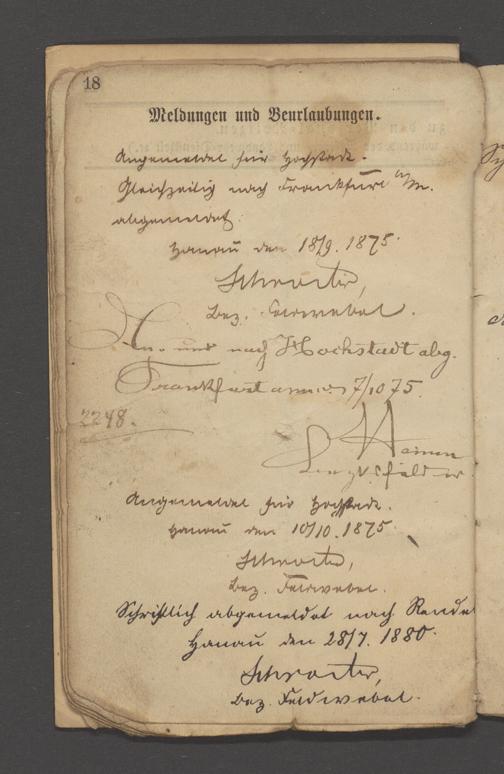 18
Meldungen und Beurlaubungen.
Angemeldet für Hochstadt.
Gleichzeitig nach Frankfurt a/m.
abgemeldet.
Hanau den 18/9. 1875.
Schroeter,
Bez. Feldwebel.
An- und nach Hochstadt abg.
Frankfurt a 7/10 75.
2248.
Bez. Feldw.
Angemeldet für Hochstadt.
Hanau den 10/10. 1875.
Schroeter,
Bez. Feldwebel.
Schriftlich abgemeldet nach Rendel
Hanau den 28/7. 1880.
Schroeter,
Bez. Feldwebel.